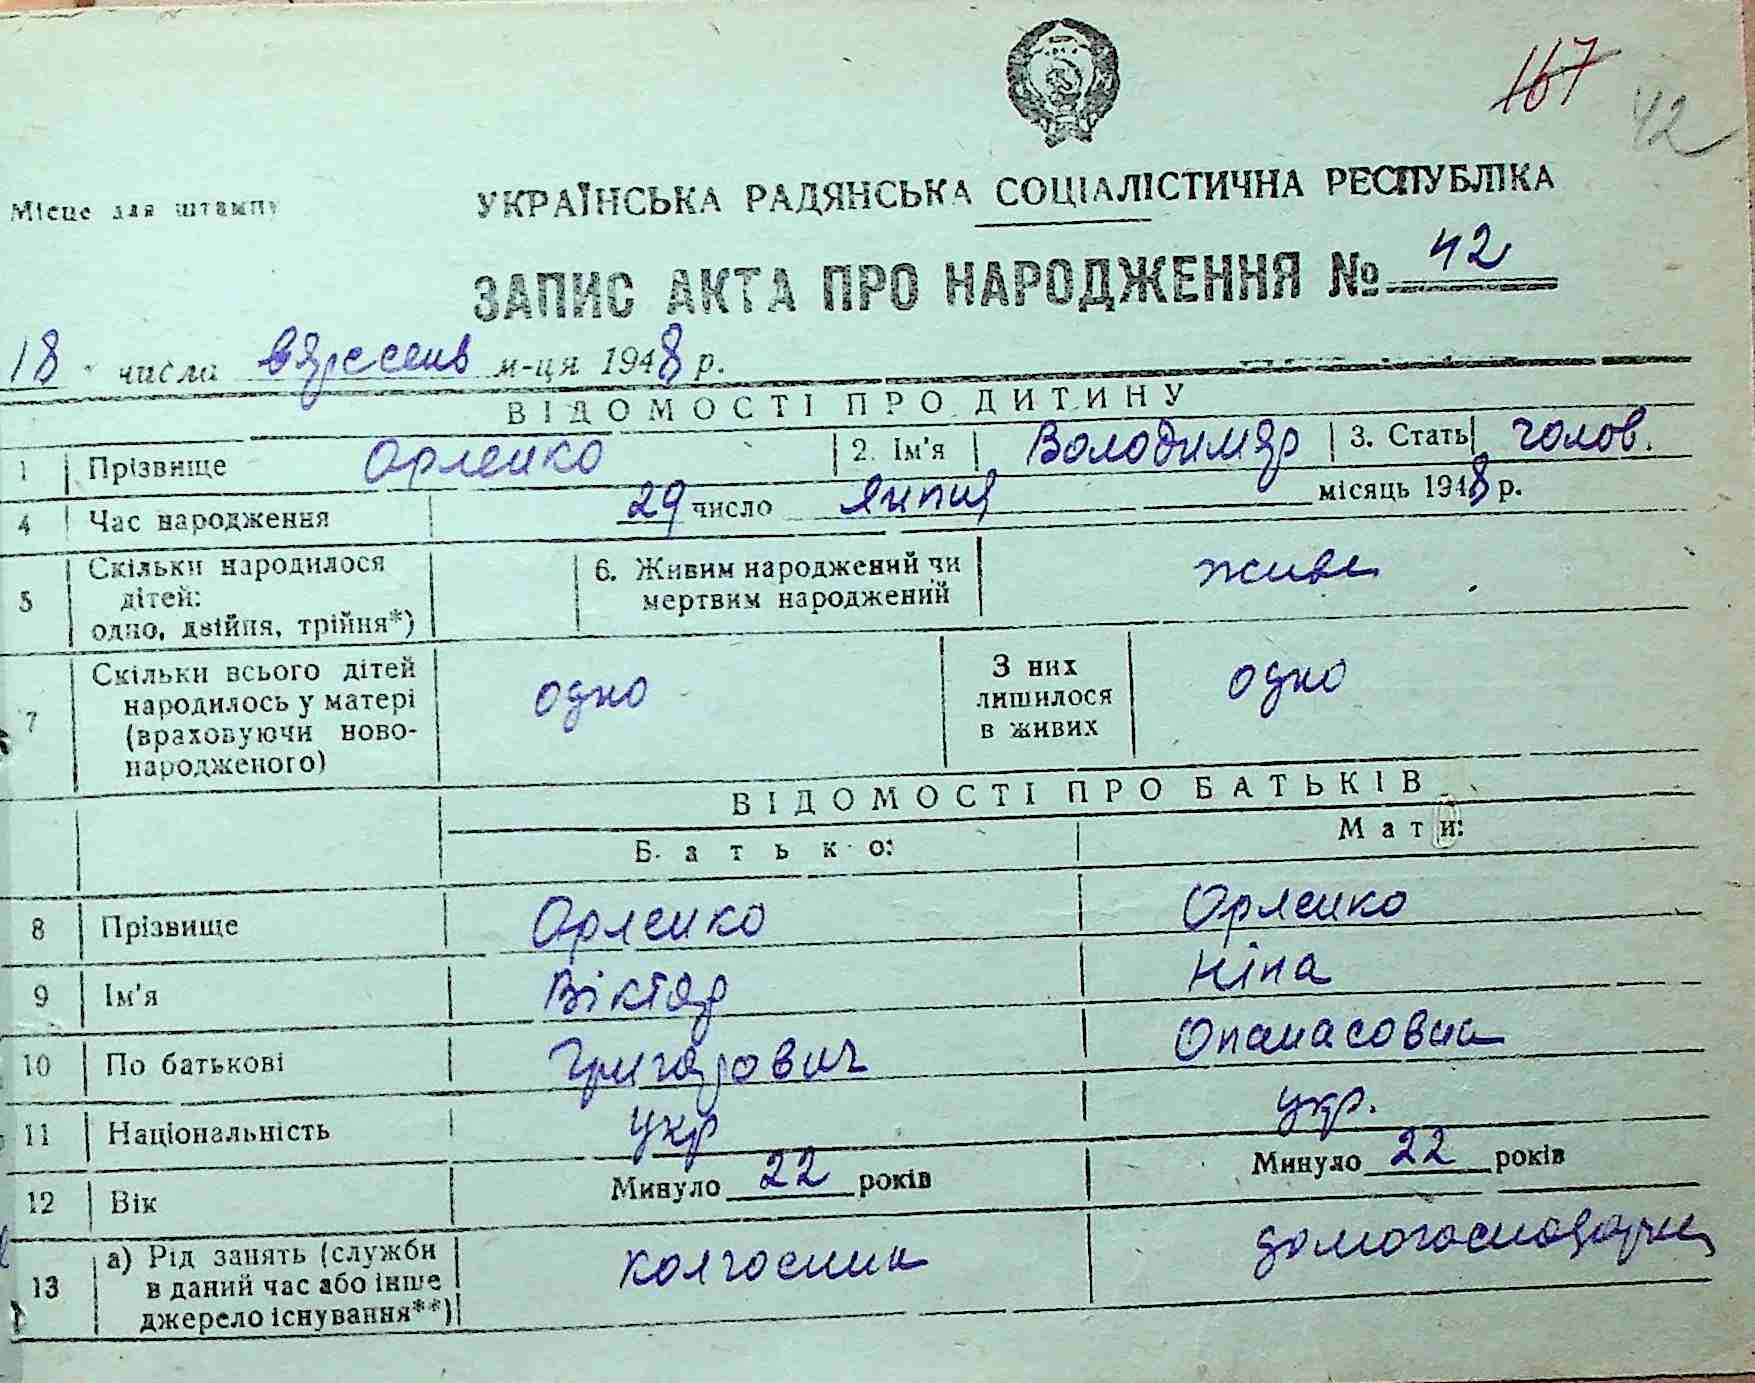 167
42
Місце для штампу
УКРАЇНСЬКА РАДЯНСЬКА СОЦІАЛІСТИЧНА РЕСПУБЛІКА
ЗАПИС АКТА ПРО НАРОДЖЕННЯ № 42
18 числа вересень м-ця 1948 р.
ВІДОМОСТІ ПРО ДИТИНУ
1 Прізвище Орленко 2. Ім'я Володимир 3. Стать чолов.
4 Час народження 29 число липня місяць 1948 р.
5 Скільки народилося дітей: одно, двійня, трійня*) 6. Живим народжений чи мертвим народжений живе
7 Скільки всього дітей народилось у матері (враховуючи ново-народженого) одно З них лишилося в живих одно
ВІДОМОСТІ ПРО БАТЬКІВ
Батько: Мати:
8 Прізвище Орленко Орленко
9 Ім'я Віктор Ніна
10 По батькові Григорович Опанасовна
11 Національність укр укр.
12 Вік Минуло 22 років Минуло 22 років
13 а) Рід занять (служби в даний час або інше джерело існування**) колгоспник домогосподарка